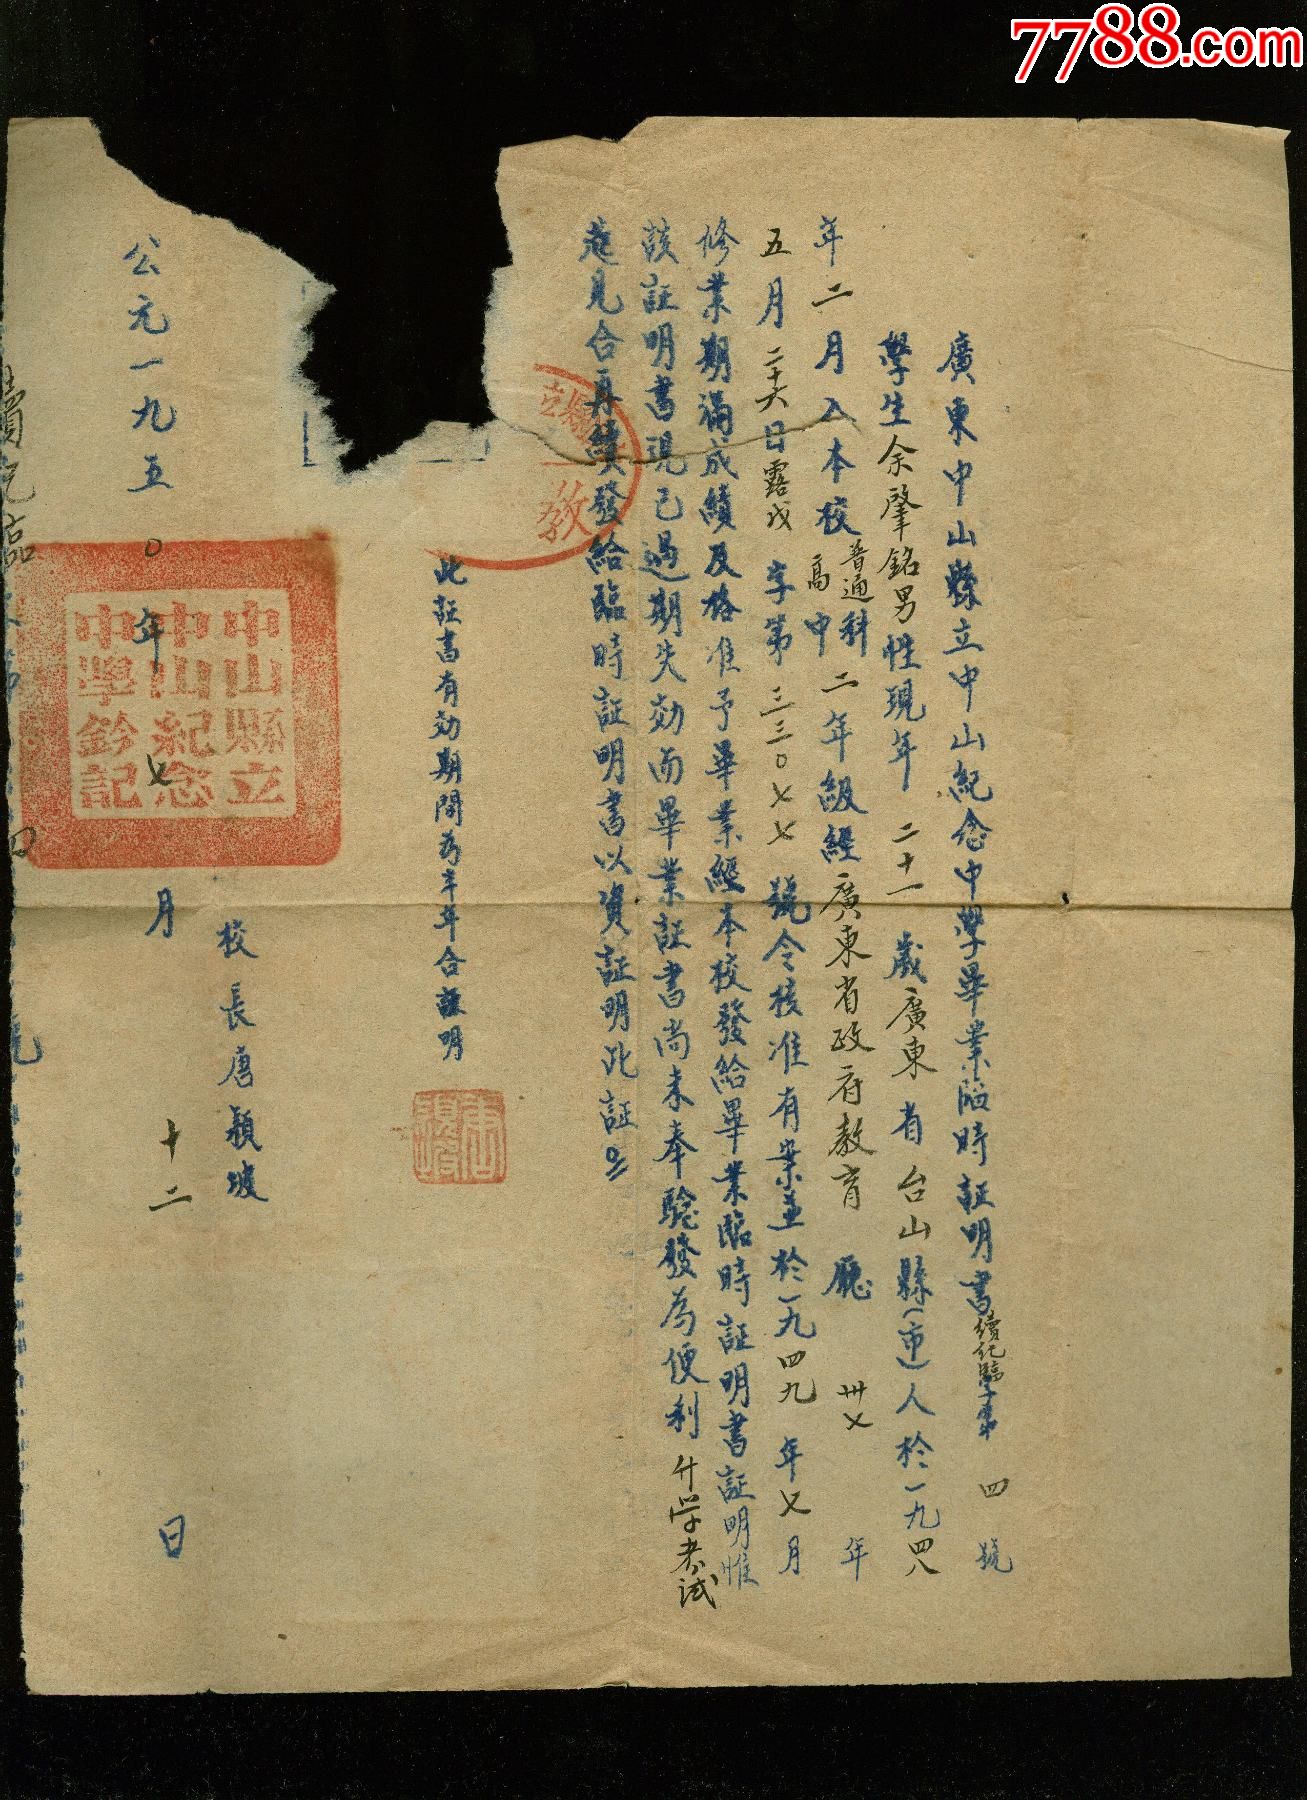 7788.com
廣東中山縣立中山紀念中學畢業臨時証明書續化臨字第 四 號
學生余肇銘男性現年 二十一 歲廣東省台山縣(市)人於一九四八
年二月入本校普通科高中二年級經廣東省政府教育 廳 卅七 年
五月二十六日露戊 字第三三〇七七 號令核准有案並於一九四九年七月
修業期滿成績及格准予畢業經本校發給畢業臨時証明書証明惟
該証明書現已過期失効而畢業証書尚未奉驗發為便利升学考試
起見合再續發給臨時証明書以資証明此証
縣立
教
此証書有効期間為半年合註明
校長唐穎坡
公元一九五〇年七月十二日
中山縣立
中山紀念
中學鈐記
續化臨